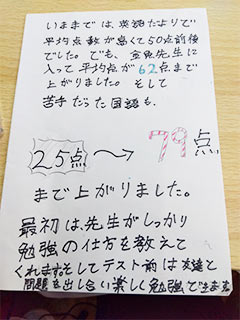 いままでは、英語たよりで
平均点数が高くて50点前後
でした。でも、金魚先生に
入って平均点が62点まで
上がりました。そして
苦手だった国語も、
25点〜→79点
まで上がりました。
最初は、先生がしっかり
勉強の仕方を教えて
くれますそしてテスト前は友達と
問題を出し合い楽しく勉強できます